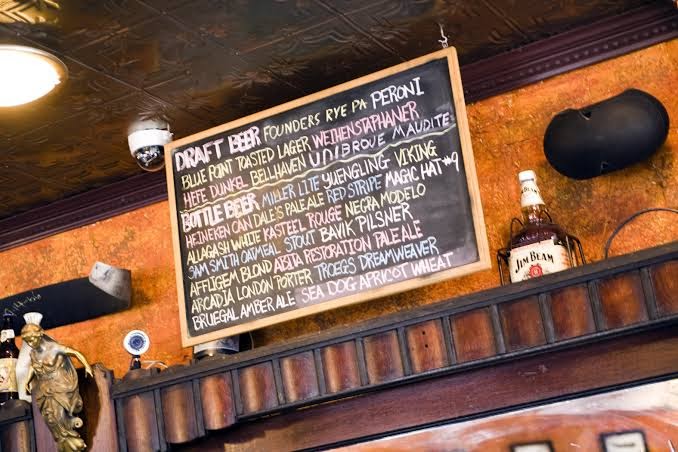 DRAFT BEER FOUNDERS RYE PA PERONI
BLUE POINT TOASTED LAGER WEIHENSTAPHANER
HEFE DUNKEL BELLHAVEN UNIBROUE MAUDITE
BOTTLE BEER MILLER LITE YUENGLING VIKING
HEINEKEN CAN DALE'S PALE ALE RED STRIPE MAGIC HAT #9
ALLAGASH WHITE KASTEEL ROUGE NEGRA MODELO
SAM SMITH OATMEAL STOUT BAVIK PILSNER
AFFLIGEM BLOND ABITA RESTORATION PALE ALE
ARCADIA LONDON PORTER TROEGS DREAMWEAVER
BRUEGAL AMBER ALE SEA DOG APRICOT WHEAT
JIM BEAM